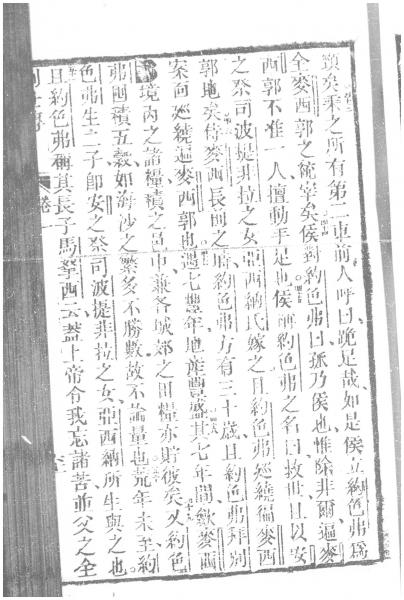 頸矣乘之所有第二車前人呼曰跪足哉如是侯立約色弗為
全麥西郭之統宰矣侯對約色弗曰孤乃侯也惟除非爾遍麥
西郭不准一人擅動手足也侯稱約色弗之名曰救世且以安
之祭司波提非拉之女亞西納氏嫁之且約色弗廵繞徧麥西
郭地矣侍麥西長前之時約色弗方有三十歲且約色弗拜別
案前廵繞遍麥西郭也遇七豐年地產豐盛其七年間歛麥西
境內之諸糧積之邑中兼各城郊之田糧亦貯彼矣又約色
弗西積五穀如海沙之繁多不勝數故不論量也荒年未至約
色弗生二子卽安之祭司波提非拉之女亞西納所生與之也
且約色弗稱其長子馬拏西云蓋上帝令我忘諸苦並父之全
卷